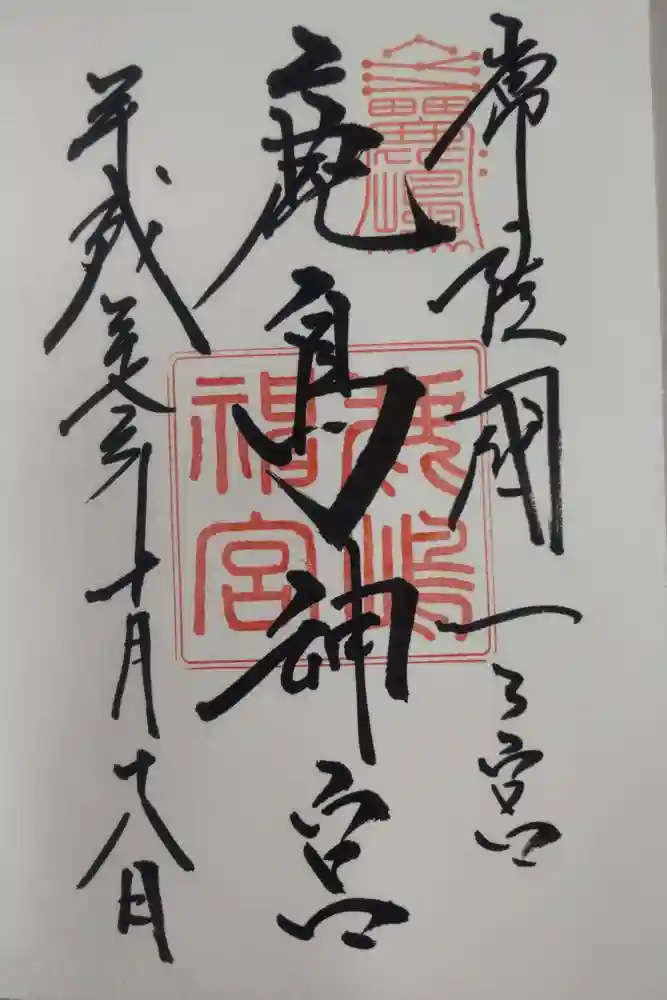 常陸國一之宮
鹿島神宮
鹿嶋神宮
平成年十月十八日